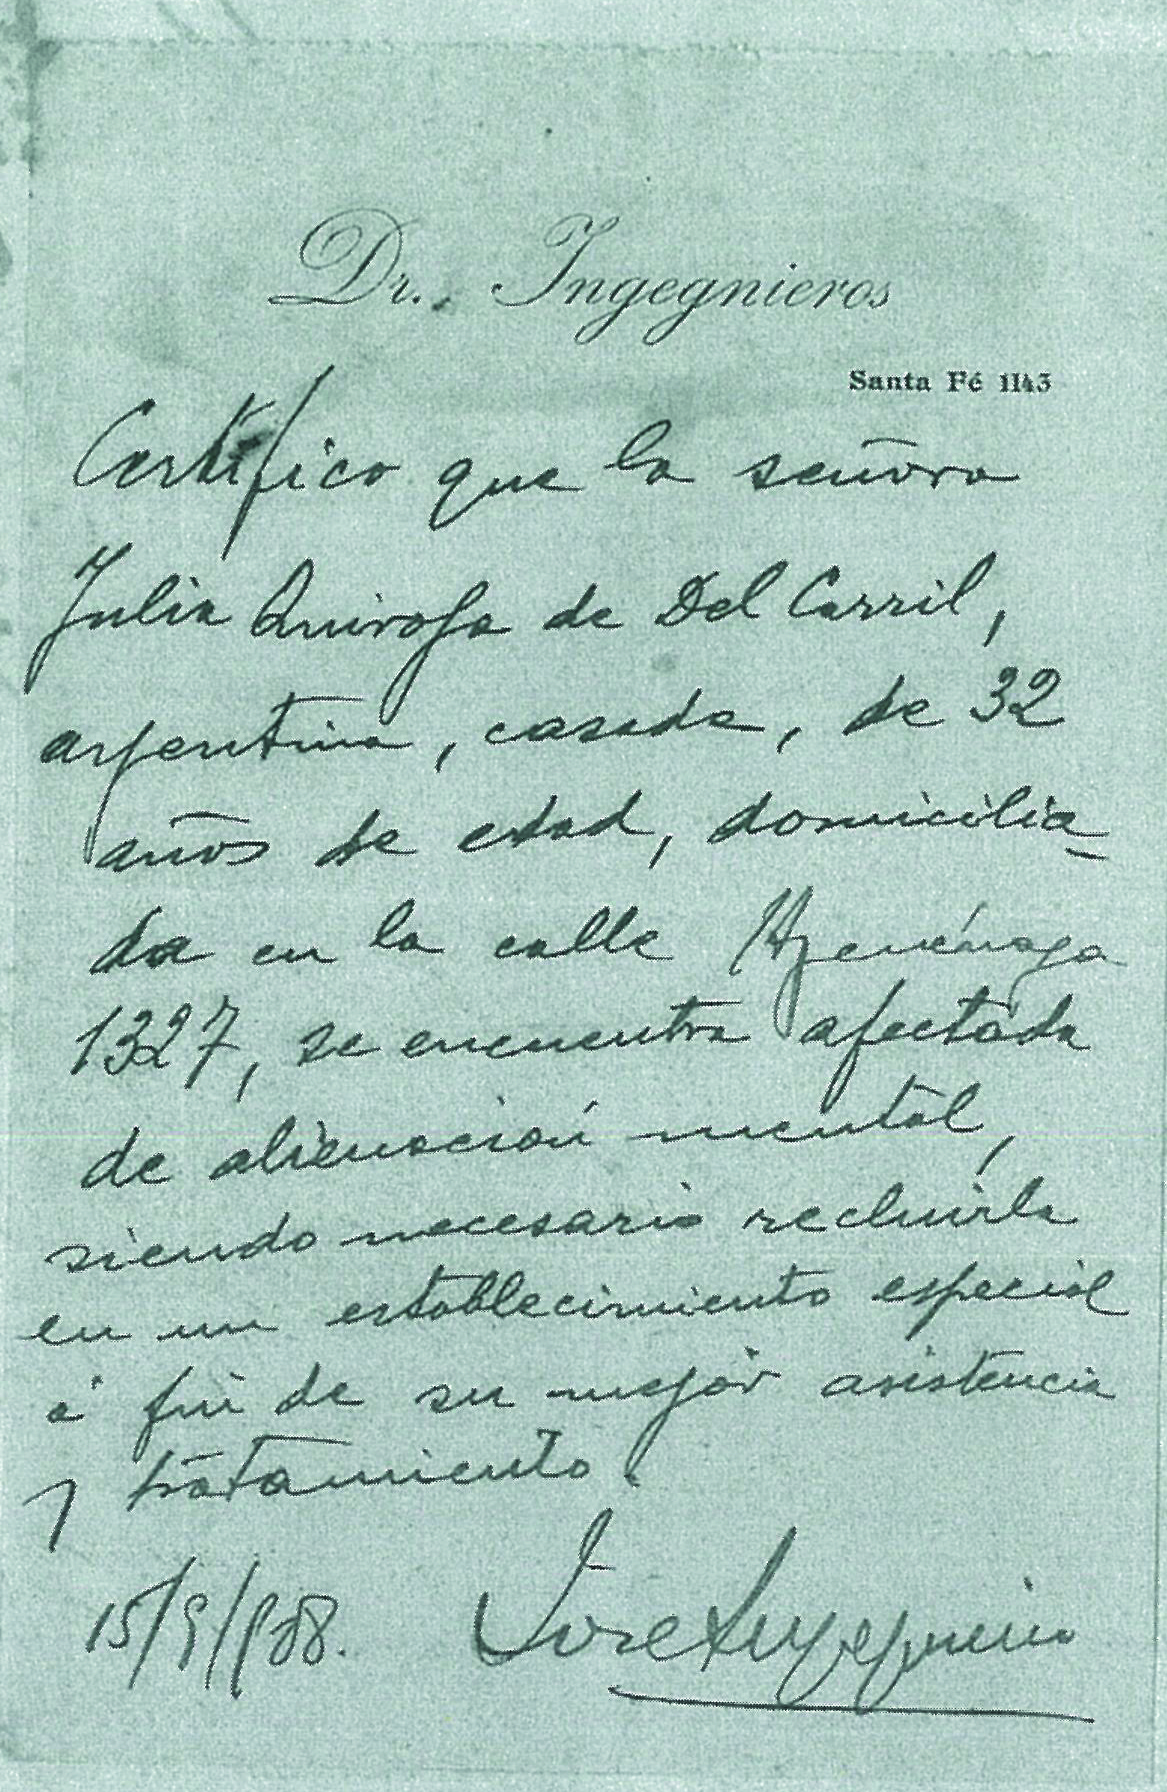 Dr. Ingegnieros
Santa Fé 1143
Certifico que la señora
Julia Quiroga de Del Carril,
argentina, casada, de 32
años de edad, domicilia-
da en la calle Azcuénaga
1327, se encuentra afectada
de alienación mental,
siendo necesario recluirla
en un establecimiento especial
á fin de su mejor asistencia
y tratamiento.
15/9/908. José Ingegnieros